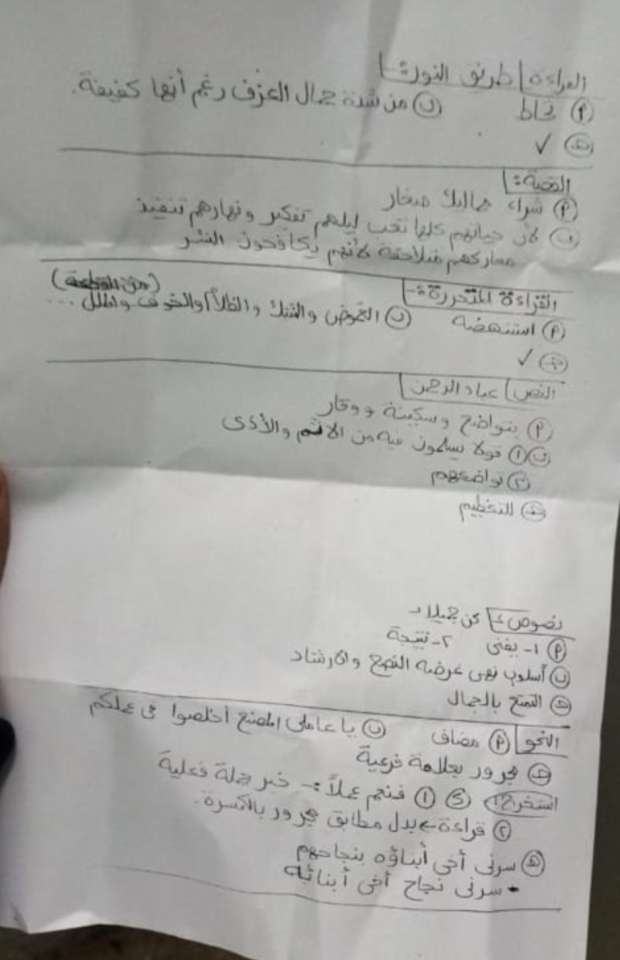 القراءة | طريق النور
(أ) تحاط (ب) من شدة جمال العزف رغم أنها كفيفة.
(جـ) ✓
القصة:
(أ) شراء مماليك صغار
(ب) لأن حياتهم كلها تعب ليلهم تفكير ونهارهم تنفيذ
معاركهم متلاحقة لأنهم يكافحون الشر
القراءة المتحررة:-
(أ) استنهضه (ب) الغموض والشك والظلام والخوف والملل ... (من القطعة)
(جـ) ✓
النص | عباد الرحمن
(أ) بتواضع وسكينة ووقار
(ب) (١) قولا يسلمون فيه من الاثم والأذى
(٢) تواضعهم
(جـ) للتعظيم
نصوص: كن جميلا
(أ) ١- يفنى ٢- نتيجة
(ب) أسلوب نهى غرضه النصح والارشاد
(جـ) التمتع بالجمال
النحو (أ) مضاف (ب) يا عاملى المصنع أخلصوا فى عملكم
(جـ) مجرور بعلامة فرعية
استخراج: (د) (١) عملاً :- خبر جملة فعلية
(٢) قراءة بدل مطابق مجرور بالكسرة.
(هـ) سرنى أخى أبناؤه بنجاحهم
- سرنى نجاح أخى أبنائه